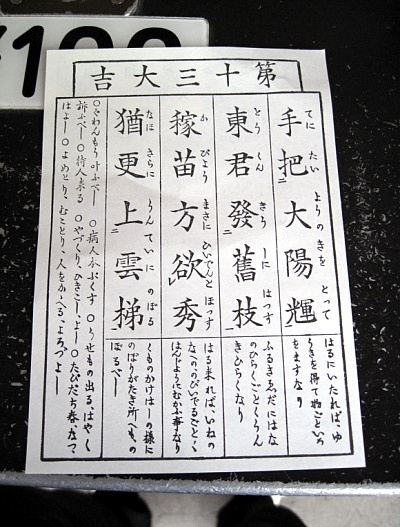 第十三大吉
手把大陽輝
てに たい ようの きを とって
はるにいたれば、ゆ
うきを得て物ごと
をますなり
東君發舊枝
とう くん きう しに はっす
ふるきゑだにはな
のひらくごとくうん
きひらくなり
稼苗方欲秀
か びよう まさに ひいでんと ほっす
はる来れば、いねの
なへののびいでるごとく
はんじようにむかふ事なり
猶更上雲梯
なほ さらに うんていに のぼる
くものかけはしの様に
のぼりがたき所へも、の
ぼるべし
○くわんもう叶ふべし ○病人本ぷくす ○うせもの出る、はやく
訴ふべし ○待人来る ○やづくり、ひきこし、よし ○たびだち春なつ
はよし ○よめとり、むことり、人をかゝへる、よろづよし